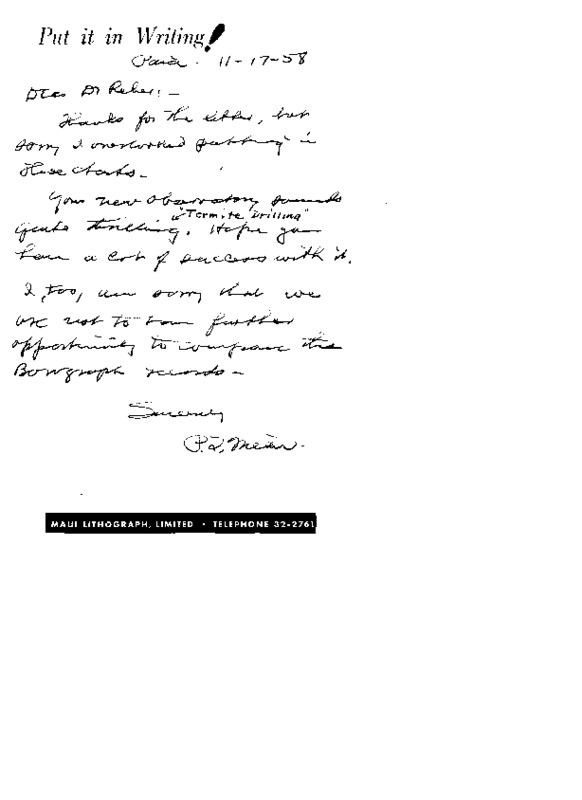 Put it in Writing!
Paia. 11-17-58
Dear Dr Reber: -
Thanks for the letter, but
sorry I overlooked putting in
those charts -
Your new observatory sounds
& "Termite Drilling"
quite thrilling. Hope you
have a lot of success with it.
I, too, am sorry that we
are not to have further
opportunity to compare the
records -
Sincerely
MAUI LITHOGRAPH, LIMITED • TELEPHONE 32-2761